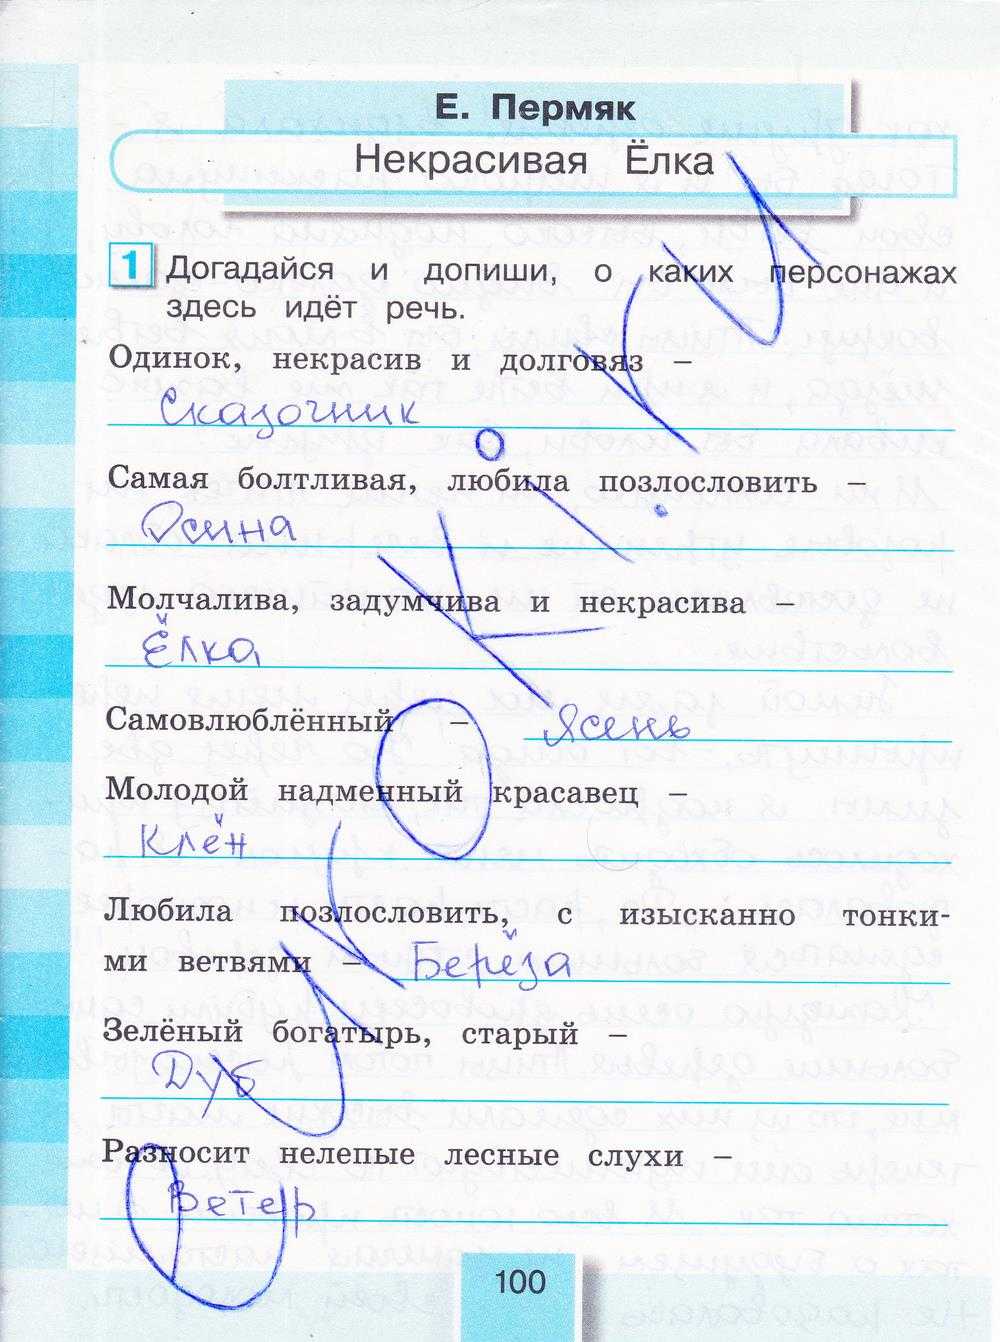 Е. Пермяк
Некрасивая Ёлка
1 Догадайся и допиши, о каких персонажах
здесь идёт речь.
Одинок, некрасив и долговяз –
Сказочник
Самая болтливая, любила позлословить –
Осина
Молчалива, задумчива и некрасива –
Ёлка
Самовлюблённый – Ясень
Молодой надменный красавец –
Клён
Любила позлословить, с изысканно тонки-
ми ветвями – Берёза
Зелёный богатырь, старый –
Дуб
Разносит нелепые лесные слухи –
Ветер
100